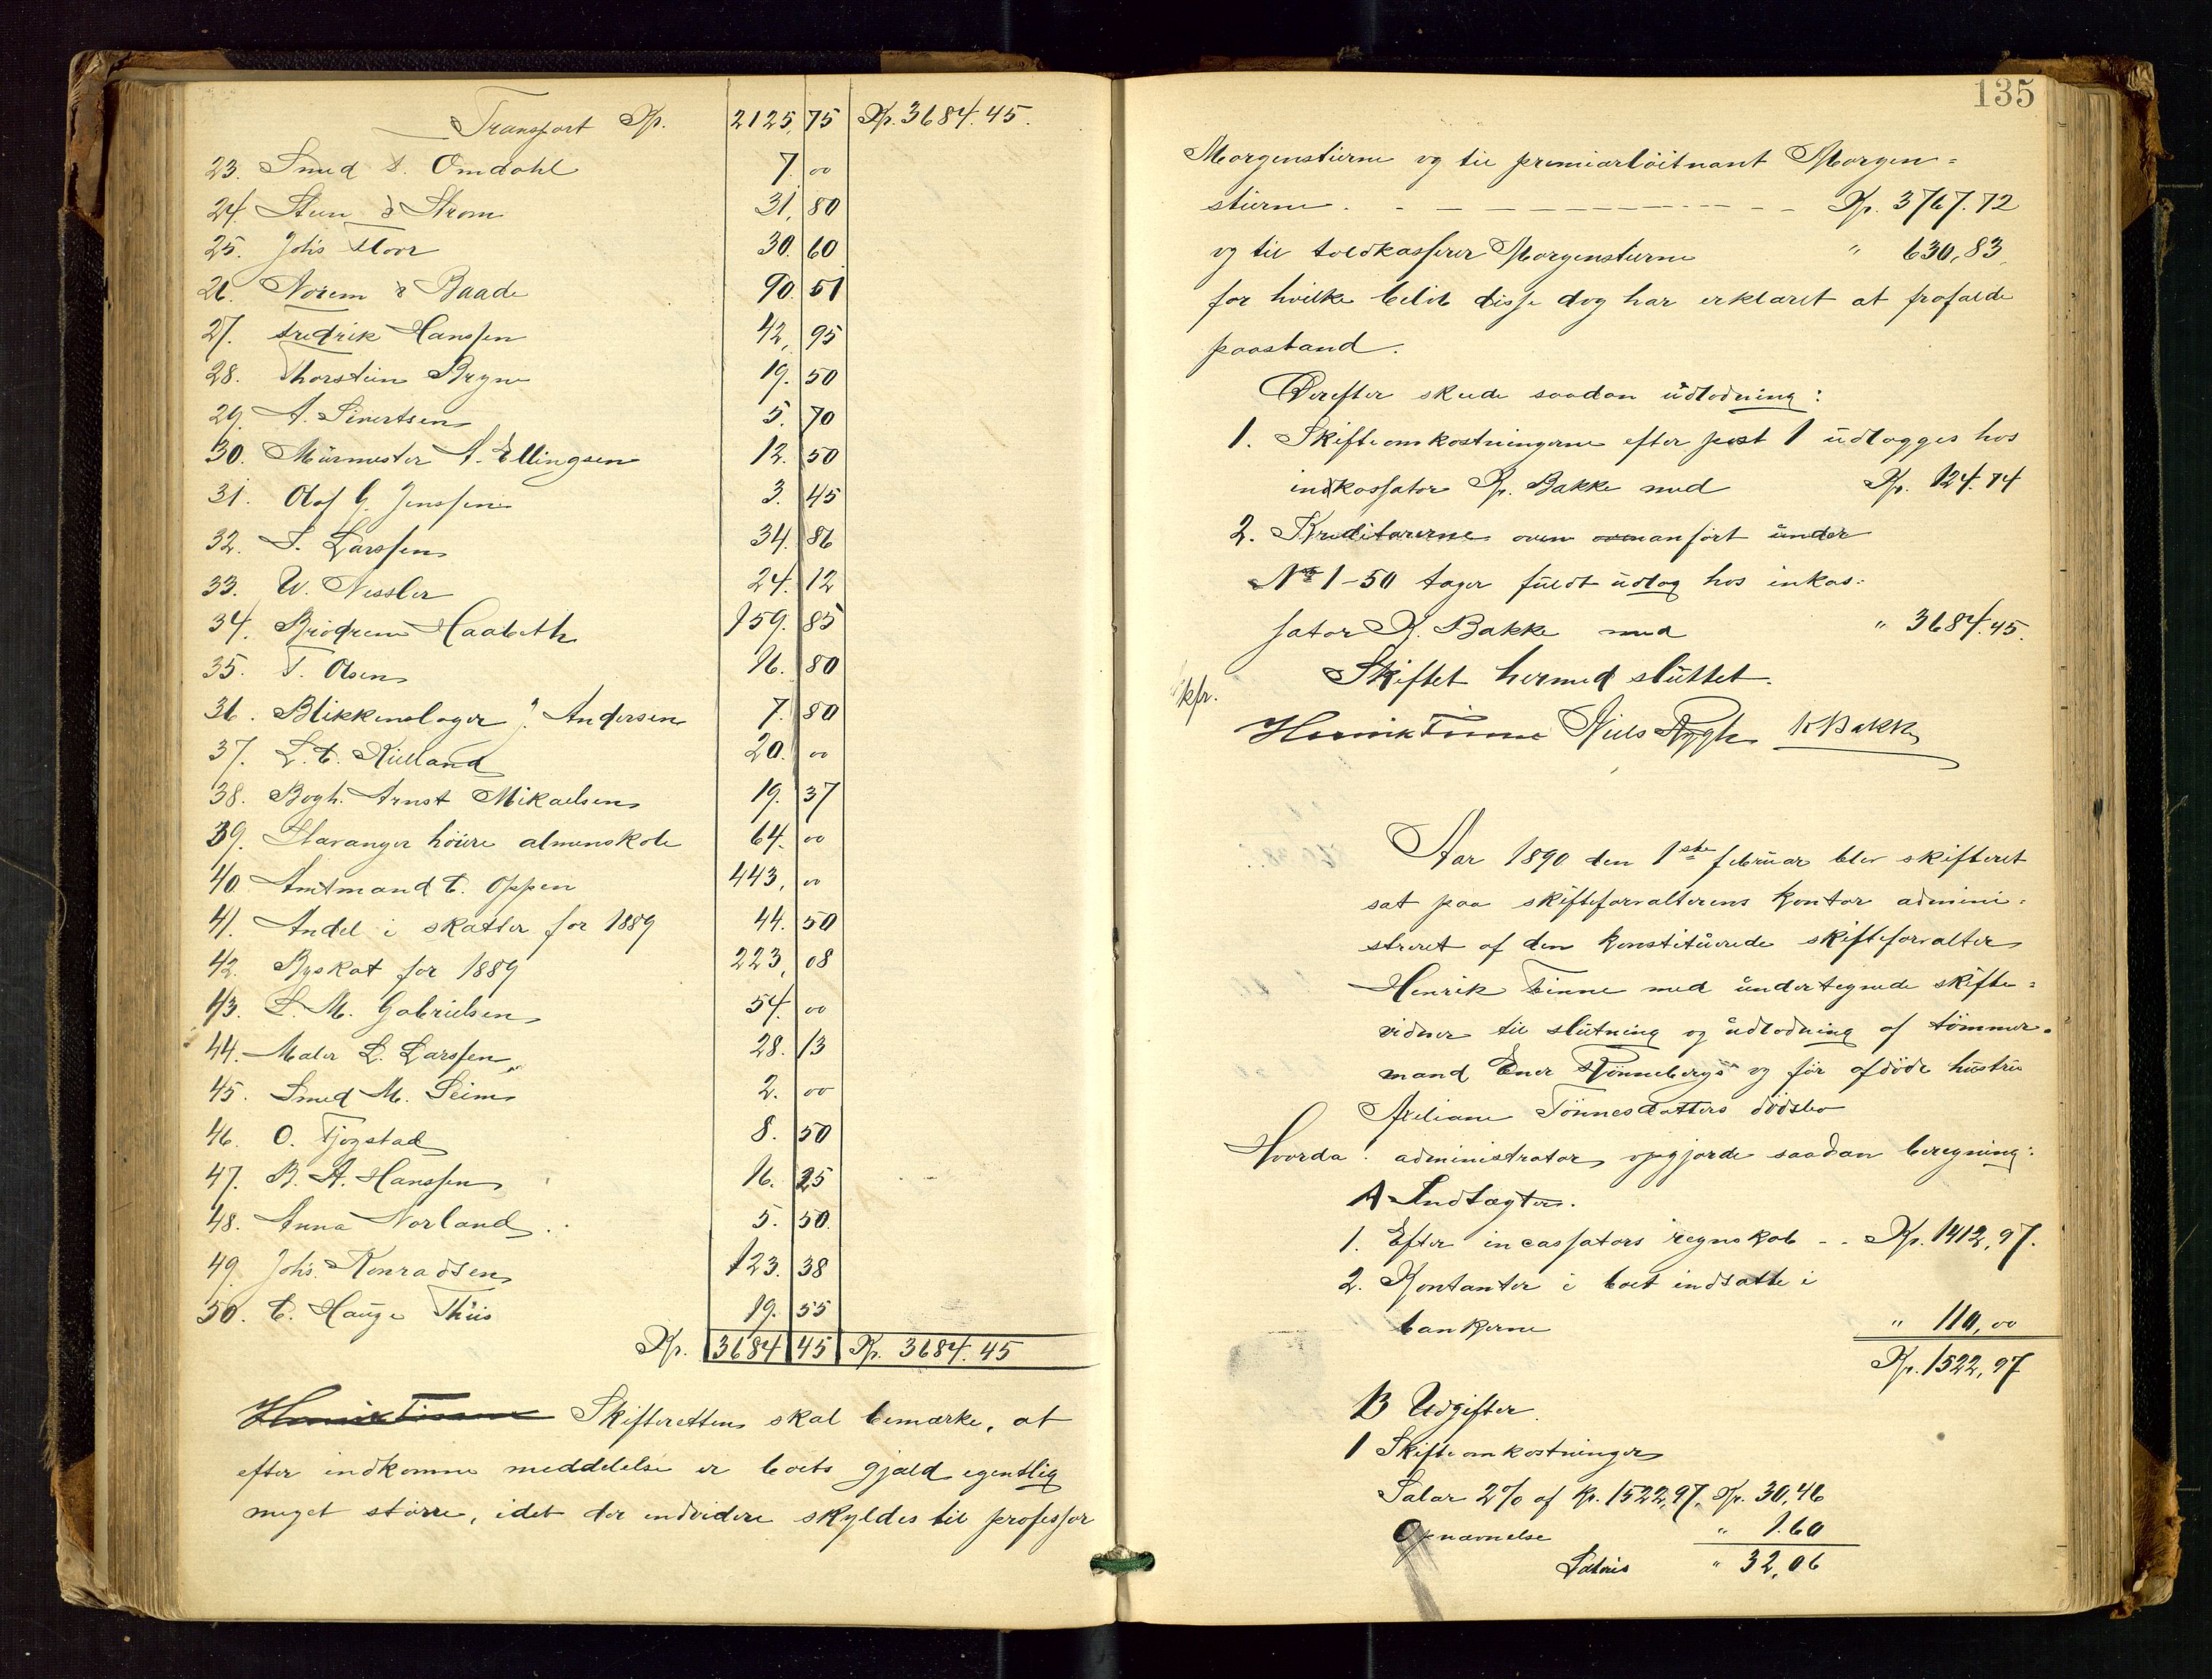 Transport Kr. 2125,75 Kr. 3684.45.
23. Smed S. Omdahl 7. 00
24. Steen & Strøm 31, 80
25. Johs Floor 30. 60
26. Norem & Baade 90. 51
27. Fredrik Hanssen 42, 95
28. Thorstein Bryne 19. 50
29. A. Sivertsen 5. 70
30. Mürmester A. Ellingsen 12. 50
31. Olaf G. Jenssen 3. 45
32. S. Larssen 34. 86
33. W. Nessler 24. 12
34. Brödrene Haabeth 159. 85
35. T. Olsen 16. 80
36. Blikkenslager J. Andersen 7. 80
37. L. C. Kielland 20. 00
38. Bogh. Arnst Mikaelsen 19. 37
39. Stavanger höiere almenskole 64. 00
40. Amtmand C. Oppen 443, 00
41. Andel i skatter for 1889 44. 50
42. Byskat for 1889 223, 08
43. L. M. Gabrielsen 54. 00
44. Maler L. Larssen 28. 13
45. Smed M. Seim 2. 00
46. O. Tjogstad 8. 50
47. B. A. Hanssen 16. 25
48. Anna Norland 5. 50.
49. Johs. Konradsen 123. 38
50. C. Hauge Thiis 19. 55
Kr. 3684 45 Kr. 3684.45
Henrik Finne Skifteretten skal bemærke, at
efter indkomne meddelelse er boets gjæld egentlig
meget större, idet der endvidere skyldes til professor
135
Morgenstierne og til premiærlöitnant Morgen=
stierne - - - Kr. 3767.72
og til toldkasserer Morgenstierne " 630,83
for hvilke belöb disse dog har erklæret at frafalde
paastand.
Derefter skede saadan üdlodning:
1. Skifteomkostningerne efter post 1 üdlægges hos
indkassator K. Bakke med Kr. 124.74
2. Kreditorerne oven anfört ünder
No 1-50 tager füldt üdlæg hos inkas=
sator K. Bakke med " 3684.45.
Skiftet hermed slüttet.
kfr.
Henrik Finne Niels Nygh K Bakke
Aar 1890 den 1ste februar blev skifteret
sat paa skifteforvalterens kontor admini=
streret af den konstitüerede skifteforvalter
Henrik Finne med ündertegnede skifte=
vidner til slütning og üdlodning af tömmer=
mand Ener Rönnebergs og för afdöde hüstrü
Tönnesdatters dödsbo
Hvorda: administrator opgjorde saadan beregning:
A Indtægter.
1. Efter incassators regnskab - - Kr. 1412,97.
2. Kontanter i boet indsatte i
bankerne " 110,00
Kr. 1522,97
B Udgifter.
1 Skifteomkostninger
Salær 2% af Kr. 1522,97. Kr. 30,46
Opnævnelse " 1.60
Lateris " 32,06